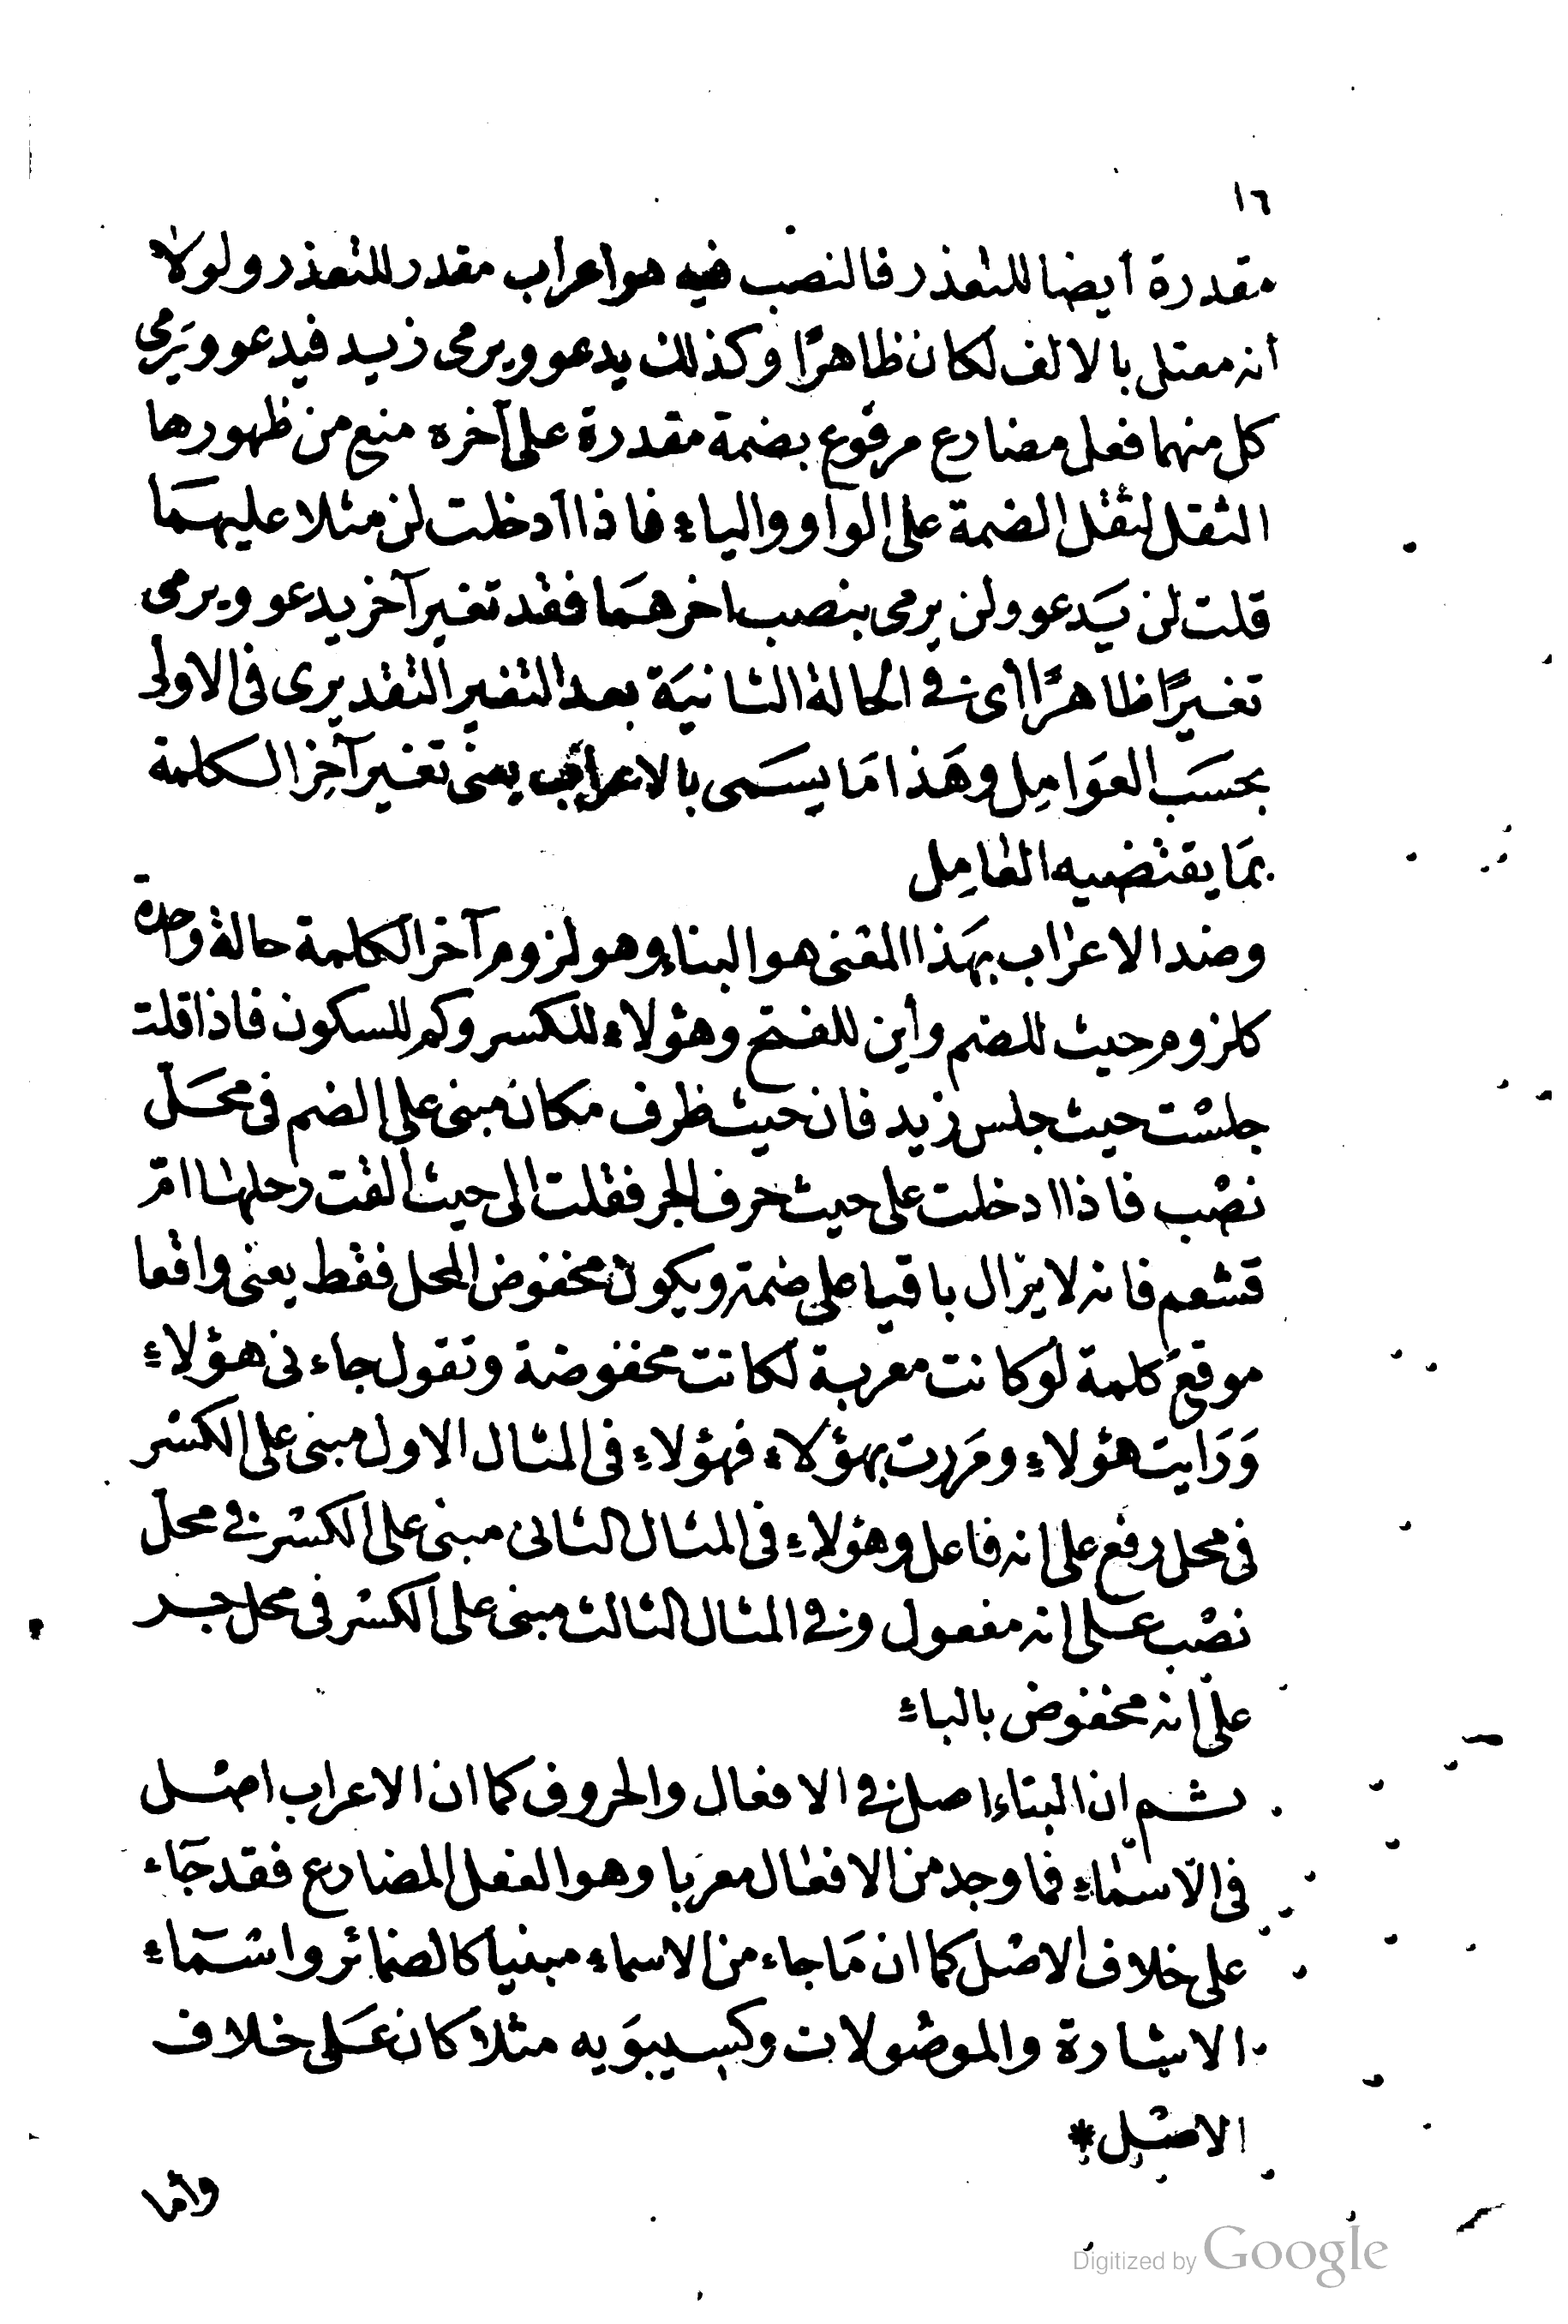 ١٦
مقدرة أيضا للتعذر فالنصب فيه هو اعراب مقدر للتعذر ولولا
أنه معتل بالالف لكان ظاهرًا وكذلك يدعو ويرمى زيد فيدعو ويَرمى
كل منهما فعل مضارع مرفوع بضمة مقدرة على آخره منع من ظهورها
الثقل لثقل الضمة على الواو والياء فاذا أدخلت لن مثلا عليهمَا
قلت لن يَدعو ولن يرمى بنصب اخرهمَا فقد تغير آخر يدعو ويرمى
تغييرًا ظاهرًا أى فى الحالة الثانيَة بعد التغير التقديرى فى الاولى
بحسَب العوَامِل وهَذا مَا يسَمى بالاعراب يعنى تغير آخِر الكلمة
بمَا يقتضيه العَامِل
وضد الاعراب بهَذا المعَنى هو البناء وهو لزوم آخر الكلمة حالة واحدة
كلزوم حيث للضم وأين للفتح وهؤلاء للكسر وكم للسكون فاذا قلت
جلسْت حيث جلس زيد فان حيث ظرف مكان مبنى على الضم فى محَلّ
نصْب فاذا ادخلت على حيث حرف الجر فقلت الى حيث ألقت رحلها امّ
قشعم فانه لا يزال باقيا على ضمته ويكون مخفوض المحل فقط يعنى واقعا
موقعَ كلمة لوكانت معربة لكانت مخفوضة وتقول جاءنى هؤلاءِ
وَرَايت هؤلاءِ ومَررت بهؤلاء فهؤلاءِ فى المثال الاول مبنى على الكسْر
فى محل رفع على انه فاعل وهؤلاءِ فى المثال الثانى مبنى على الكسْر فى محلّ
نصْب على انه مفعول وفى المثال الثالث مبنى على الكسْر فى محل جر
على انه مخفوض بالباءِ
ثم ان البناء اصل فى الافعال والحروف كما ان الاعراب اصْل
فى الاسمَاءِ فما وجد من الافعَال معرَبا وهو الفعل المضارع فقد جَاء
على خلاف الاصْل كما ان مَا جاء من الاسماء مبنيا كالضمائر واسمَاءِ
الاشارة والموصُولات وكسيبوَيه مثلا كان عَلى خلاف
الاصْل *
وأما
Digitized by Google